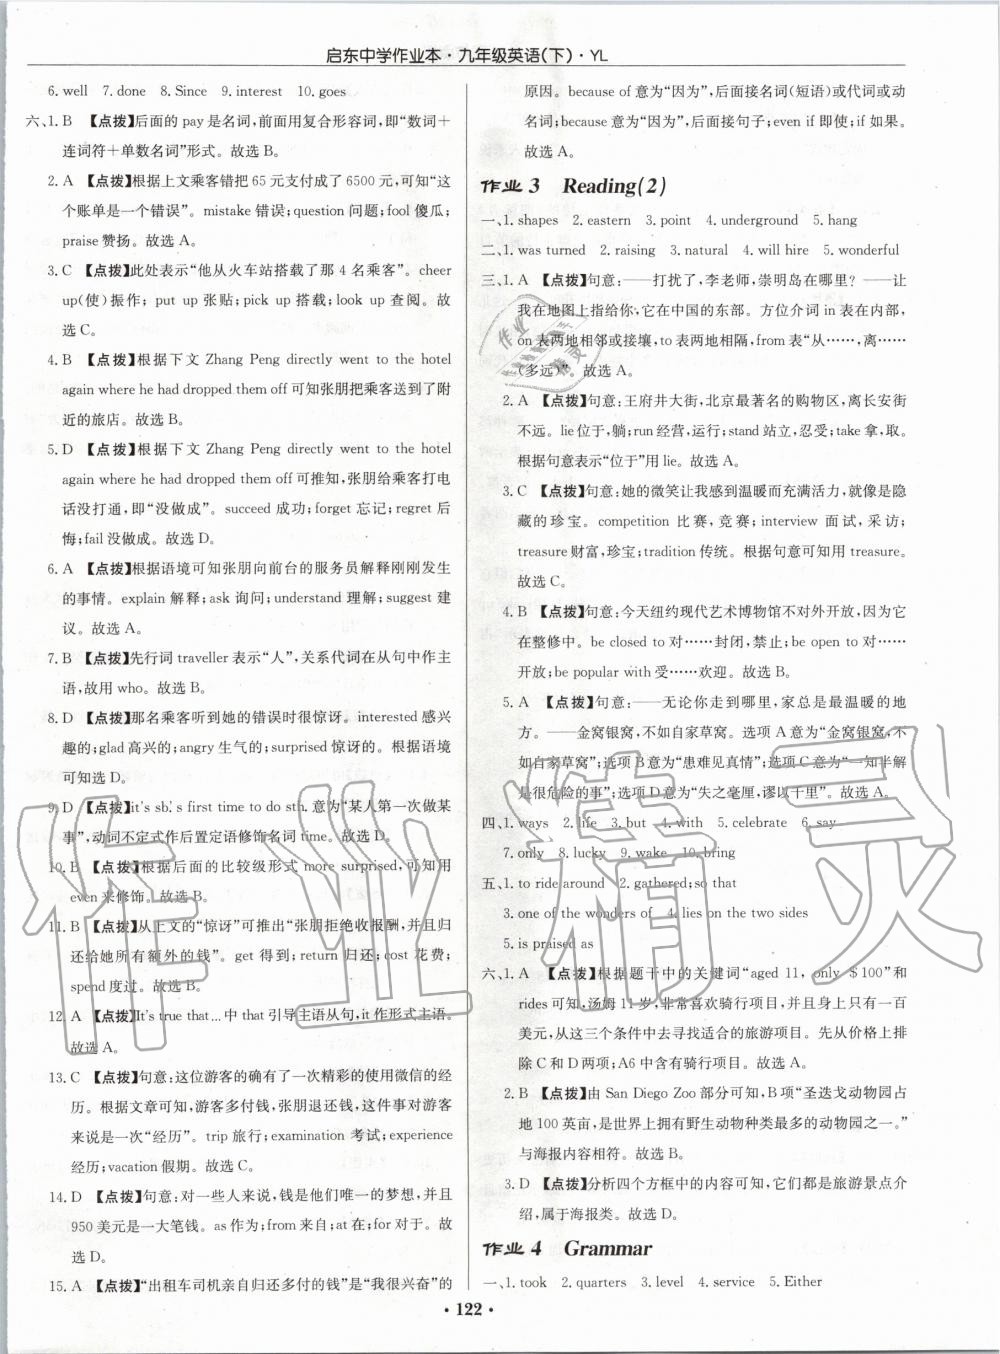 启东中学作业本·九年级英语(下)·YL
6. well 7. done 8. Since 9. interest 10. goes
六、1. B 【点拨】后面的 pay 是名词,前面用复合形容词,即“数词＋
连词符＋单数名词”形式。故选 B。
2. A 【点拨】根据上文乘客错把 65 元支付成了 6500 元,可知“这
个账单是一个错误”。mistake 错误;question 问题;fool 傻瓜;
praise 赞扬。故选 A。
3. C 【点拨】此处表示“他从火车站搭载了那 4 名乘客”。cheer
up(使)振作; put up 张贴;pick up 搭载;look up 查阅。故
选 C。
4. B 【点拨】根据下文 Zhang Peng directly went to the hotel
again where he had dropped them off 可知张朋把乘客送到了附
近的旅店。故选 B。
5. D 【点拨】根据下文 Zhang Peng directly went to the hotel
again where he had dropped them off 可推知,张朋给乘客打电
话没打通,即“没做成”。succeed 成功;forget 忘记;regret 后
悔;fail 没做成。故选 D。
6. A 【点拨】根据语境可知张朋向前台的服务员解释刚刚发生
的事情。explain 解释;ask 询问;understand 理解;suggest 建
议。故选 A。
7. B 【点拨】先行词 traveller 表示“人”,关系代词在从句中作主
语,故用 who。故选 B。
8. D 【点拨】那名乘客听到她的错误时很惊讶。interested 感兴
趣的;glad 高兴的;angry 生气的;surprised 惊讶的。根据语境
可知选 D。
9. D 【点拨】it's sb.'s first time to do sth. 意为“某人第一次做某
事”,动词不定式作后置定语修饰名词 time。故选 D。
10. B 【点拨】根据后面的比较级形式 more surprised,可知用
even 来修饰。故选 B。
11. B 【点拨】从上文的“惊讶”可推出“张朋拒绝收报酬,并且归
还给她所有额外的钱”。get 得到;return 归还;cost 花费;
spend 度过。故选 B。
12. A 【点拨】It's true that… 中 that 引导主语从句,it 作形式主语。
故选 A。
13. C 【点拨】句意:这位游客的确有了一次精彩的使用微信的经
历。根据文章可知,游客多付钱,张朋退还钱,这件事对游客
来说是一次“经历”。trip 旅行;examination 考试;experience
经历;vacation 假期。故选 C。
14. D 【点拨】句意:对一些人来说,钱是他们唯一的梦想,并且
950 美元是一大笔钱。as 作为;from 来自;at 在;for 对于。故
选 D。
15. A 【点拨】“出租车司机亲自归还多付的钱”是“我很兴奋”的
原因。because of 意为“因为”,后面接名词(短语)或代词或动
名词;because 意为“因为”,后面接句子;even if 即使;if 如果。
故选 A。
作业 3 Reading(2)
一、1. shapes 2. eastern 3. point 4. underground 5. hang
二、1. was turned 2. raising 3. natural 4. will hire 5. wonderful
三、1. A 【点拨】句意:——打扰了,李老师,崇明岛在哪里? ——让
我在地图上指给你,它在中国的东部。方位介词 in 表在内部,
on 表两地相邻或接壤,to 表两地相隔,from 表“从……,离……
(多远)”。故选 A。
2. A 【点拨】句意:王府井大街,北京最著名的购物区,离长安街
不远。lie 位于,躺;run 经营,运行;stand 站立,忍受;take 拿,取。
根据句意表示“位于”用 lie。故选 A。
3. C 【点拨】句意:她的微笑让我感到温暖而充满活力,就像是隐
藏的珍宝。competition 比赛,竞赛;interview 面试,采访;
treasure 财富,珍宝;tradition 传统。根据句意可知用 treasure。
故选 C。
4. B 【点拨】句意:今天纽约现代艺术博物馆不对外开放,因为它
在整修中。be closed to 对……封闭,禁止;be open to 对……
开放;be popular with 受……欢迎。故选 B。
5. A 【点拨】句意:——无论你走到哪里,家总是最温暖的地
方。——金窝银窝,不如自家草窝。选项 A 意为“金窝银窝,不
如自家草窝”;选项 B 意为“患难见真情”;选项 C 意为“一知半解
是很危险的事”;选项 D 意为“失之毫厘,谬以千里”。故选 A。
四、1. ways 2. life 3. but 4. with 5. celebrate 6. say
7. only 8. lucky 9. wake 10. bring
五、1. to ride around 2. gathered;so that
3. one of the wonders of 4. lies on the two sides
5. is praised as
六、1. A 【点拨】根据题干中的关键词“aged 11, only $ 100”和
rides 可知,汤姆 11 岁,非常喜欢骑行项目,并且只有一百
美元,从这三个条件中去寻找适合的旅游项目。先从价格上排
除 C 和 D 两项;A6 中含有骑行项目。故选 A。
2. B 【点拨】由 San Diego Zoo 部分可知,B 项“圣迭戈动物园占
地 100 英亩,是世界上拥有野生动物种类最多的动物园之一。”
与海报内容相符。故选 B。
3. D 【点拨】分析四个方框中的内容可知,它们都是旅游景点介
绍,属于海报类。故选 D。
作业 4 Grammar
一、1. took 2. quarters 3. level 4. service 5. Either
· 122 ·
作业精灵